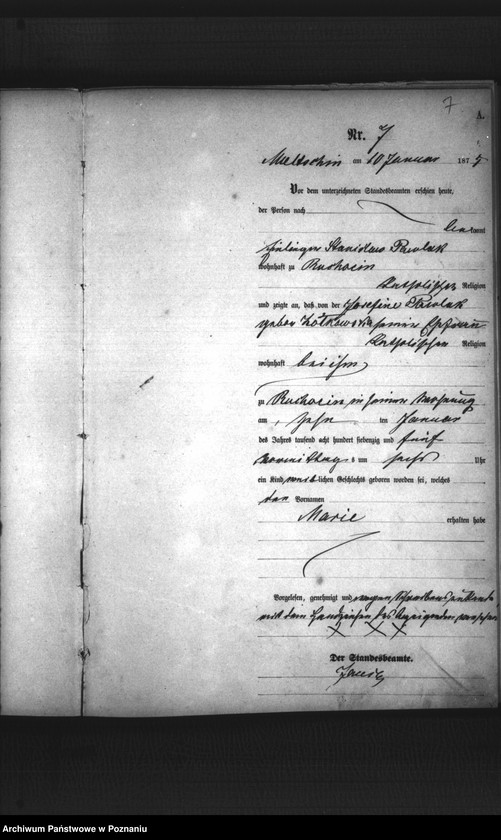 7
A.
Nr. 7
Meltschin am 10 Januar 1875
Vor dem unterzeichneten Standesbeamten erschien heute,
der Person nach
bekannt
Stanislaus Pawlak
wohnhaft zu Ruchocin
katholischer Religion
und zeigte an, daß von der Josefine Pawlak
seiner Ehefrau
katholischer Religion
wohnhaft bei ihm
zu Ruchocin in seiner Wohnung
am zehn ten Januar
des Jahres tausend acht hundert siebenzig und fünf
vormittags um sechs Uhr
ein Kind weiblichen Geschlechts geboren worden sei, welches
den Vornamen
Marie
erhalten habe
Vorgelesen, genehmigt und wegen
mit dem Handzeichen des versehen
X X X
Der Standesbeamte.
Archiwum Państwowe w Poznaniu